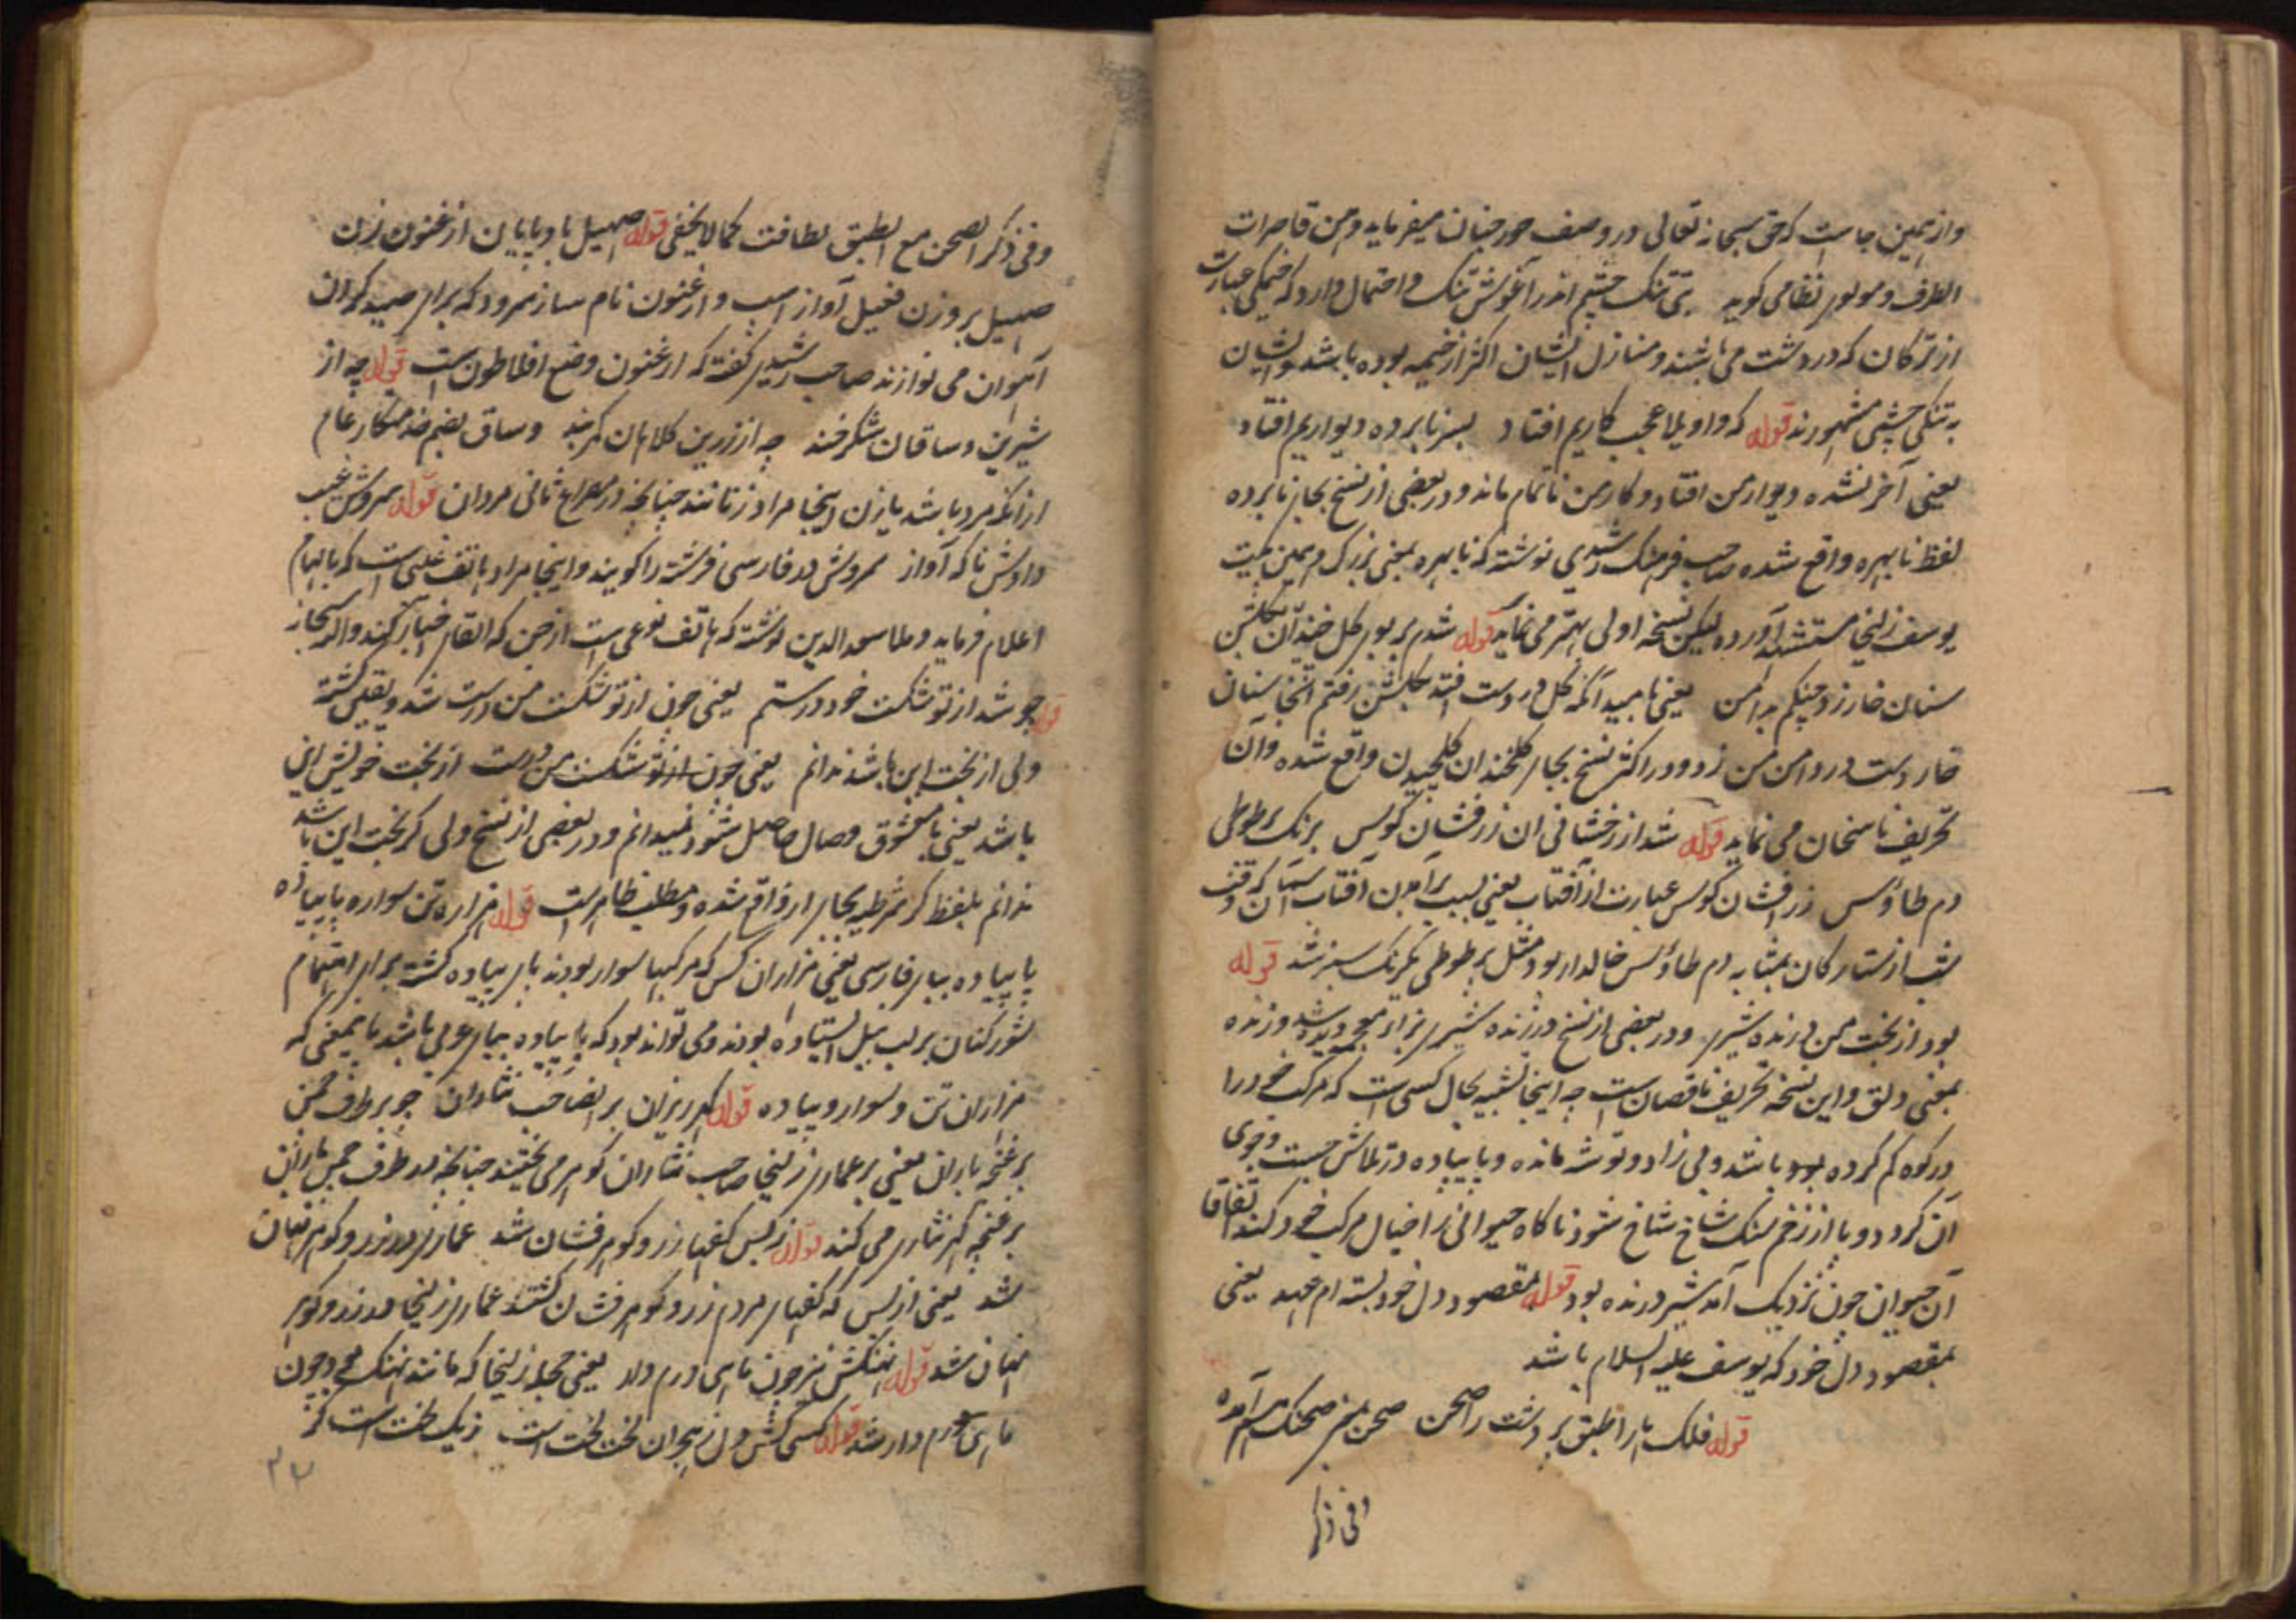 وازهمین جاست که حق سبحانه تعالی در وصف حور جنان میفرماید ومن قاصرات
الطرف ومولوی نظامی کوید بتی تنک چشم اندر آغوش تنک واحتمال دارد که خیمکی عبارت
از ترکان که در دشت می باشند ومنازل ایشان اکثر از خیمه بوده باشد وایشان
به تنکی چشمی مشهورند قوله که واویلا عجب کاریم افتاد بسر نابرده دیواریم افتاد
یعنی آخر نشده دیوار من افتاد وکار من ناتمام ماند ودر بعضی از نسخ بجای نابرده
لفظ نابهره واقع شده صاحب فرهنک رشیدی نوشته که نابهره بمعنی بزرک وهمین بیت
یوسف زلیخا مستشهد آورده لیکن نسخه اولی بهتر می نماید قوله شدم بر بوی کل خندان بکلشن
سنان خار زد چنکم بدامن یعنی بامید آنکه کل در دست افتد بکلشن رفتم آنجا سنان
خار دست در دامن من زد ودر اکثر نسخ بجای کلخندان کلچیدن واقع شده وآن
تحریف ناسخان می نماید قوله شد از رخشانی ان زرفشان کوس برنک پر طوطی
دم طاؤس زرافشان کوس عبارت از آفتاب یعنی بسبب برآمدن آفتاب آسمان که وقت
شب از ستارکان بمثابه دم طاؤس خالدار بود مثل پر طوطی یکرنک سبز شد قوله
بود از بخت من درنده شیری ودر بعضی از نسخ درژنده شیری بزای معجمه دیده شد وژنده
بمعنی دلق واین نسخه تحریف ناقصان است چه اینجا تشبیه بحال کسی است که مرکب خود را
در کوه کم کرده بود باشد وبی زاد وتوشه مانده وپا پیاده در تلاش جست وجوی
آن کردد وپا از زخم سنک شاخ شاخ شود ناکاه حیوانی را خیال مرکب خود کند اتفاقا
آن حیوان چون نزدیک آمد شیر درنده بود قوله بمقصود دل خود بسته ام عهد یعنی
بمقصود دل خود که یوسف علیه السلام باشد
قوله فلک را طبق پر دشت را صحن صحن نیز صحنک هم آمده
وفی ذکر
وفی ذکر الصحن مع الطبق لطافت کما لا یخفی قوله صهیل باد پایان ارغنون زن
صهیل بر وزن فعیل آواز اسب وارغنون نام ساز سرود که برای صید کردن
آهوان می نوازند صاحب رشیدی کفته که ارغنون وضع افلاطون است قوله چه از
شیرین وساقان شکرخند چه از زرین کلاهان کمربند وساق بضم خدمتکار عام
ازانکه مرد باشد یا زن اینجا مراد زنانند چنانچه در مصراع ثانی مردان قوله سروش غیب
دادش ناکه آواز سروش در فارسی فرشته را کویند واینجا مراد هاتف غیبی است که بالهام
اعلام فرماید وملا سعد الدین نوشته که هاتف نوعی است از جن که القای اخبار کند والله سبحانه
قوله چو شد از تو شکست خود درستم یعنی چون از تو شکست من درست شد وبقلب کشته
ولی از بخت این باشد ندانم یعنی چون از تو شکست من درست از بخت خویش این
باشد یعنی با معشوق وصال حاصل شود نمیدانم ودر بعضی از نسخ ولی کر بخت این باشد
ندانم بلفظ کر شرطیه بجای از واقع شده ومطلب ظاهر است قوله هزاران تن سواره یا پیاده
یا پیاده بیای فارسی یعنی هزاران کس که مرکبها سوار بودند پای پیاده کشته برای اهتمام
شور کنان بر لب نیل استاده بودند ومی تواند بود که یا پیاده بیای عربی باشد باینمعنی که
هزاران تن وسوار وپیاده قوله کهر ریزان بر انصاحب نثاران چو بر طرف چمن
بر غنچه باران یعنی بر عماری زلیخا صاحب نثاران کوهر می ریختند چنانچه در طرف چمن باران
بر غنچه کهر نثاری می کند قوله ز بس کفها زر وکوهر فشان شد عماری در زر وکوهر نهان
شد یعنی از بس که کفهای مردم زر وکوهر فشان کشتند عماری زلیخا در زر وکوهر
نهان شد قوله نهنکش نیز چون ماهی درم دار یعنی حجله زلیخا که مانند نهنک بود چون
ماهی درم دار شد قوله کسی کش دل ز هجران لخت لخت است ز یک لخت است کر
۳۷